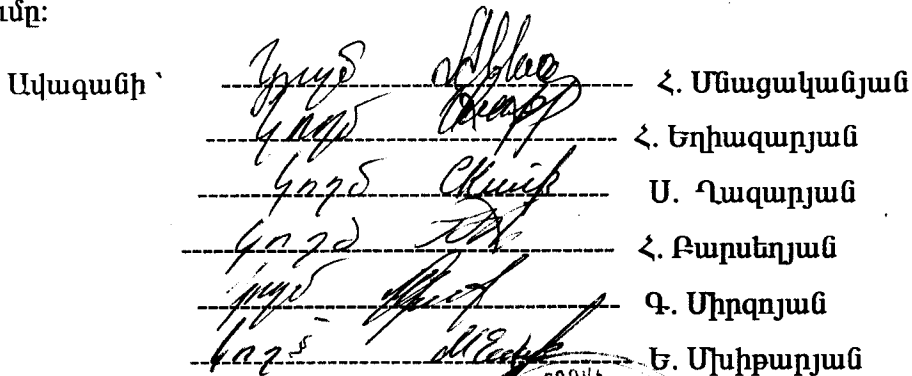 ւմը:
Ավագանի ՝ կողմ Հ. Մնացականյան
կողմ Հ. Եղիազարյան
կողմ Ս. Ղազարյան
կողմ Հ. Բարսեղյան
կողմ Գ. Միրզոյան
կողմ Ե. Մխիթարյան